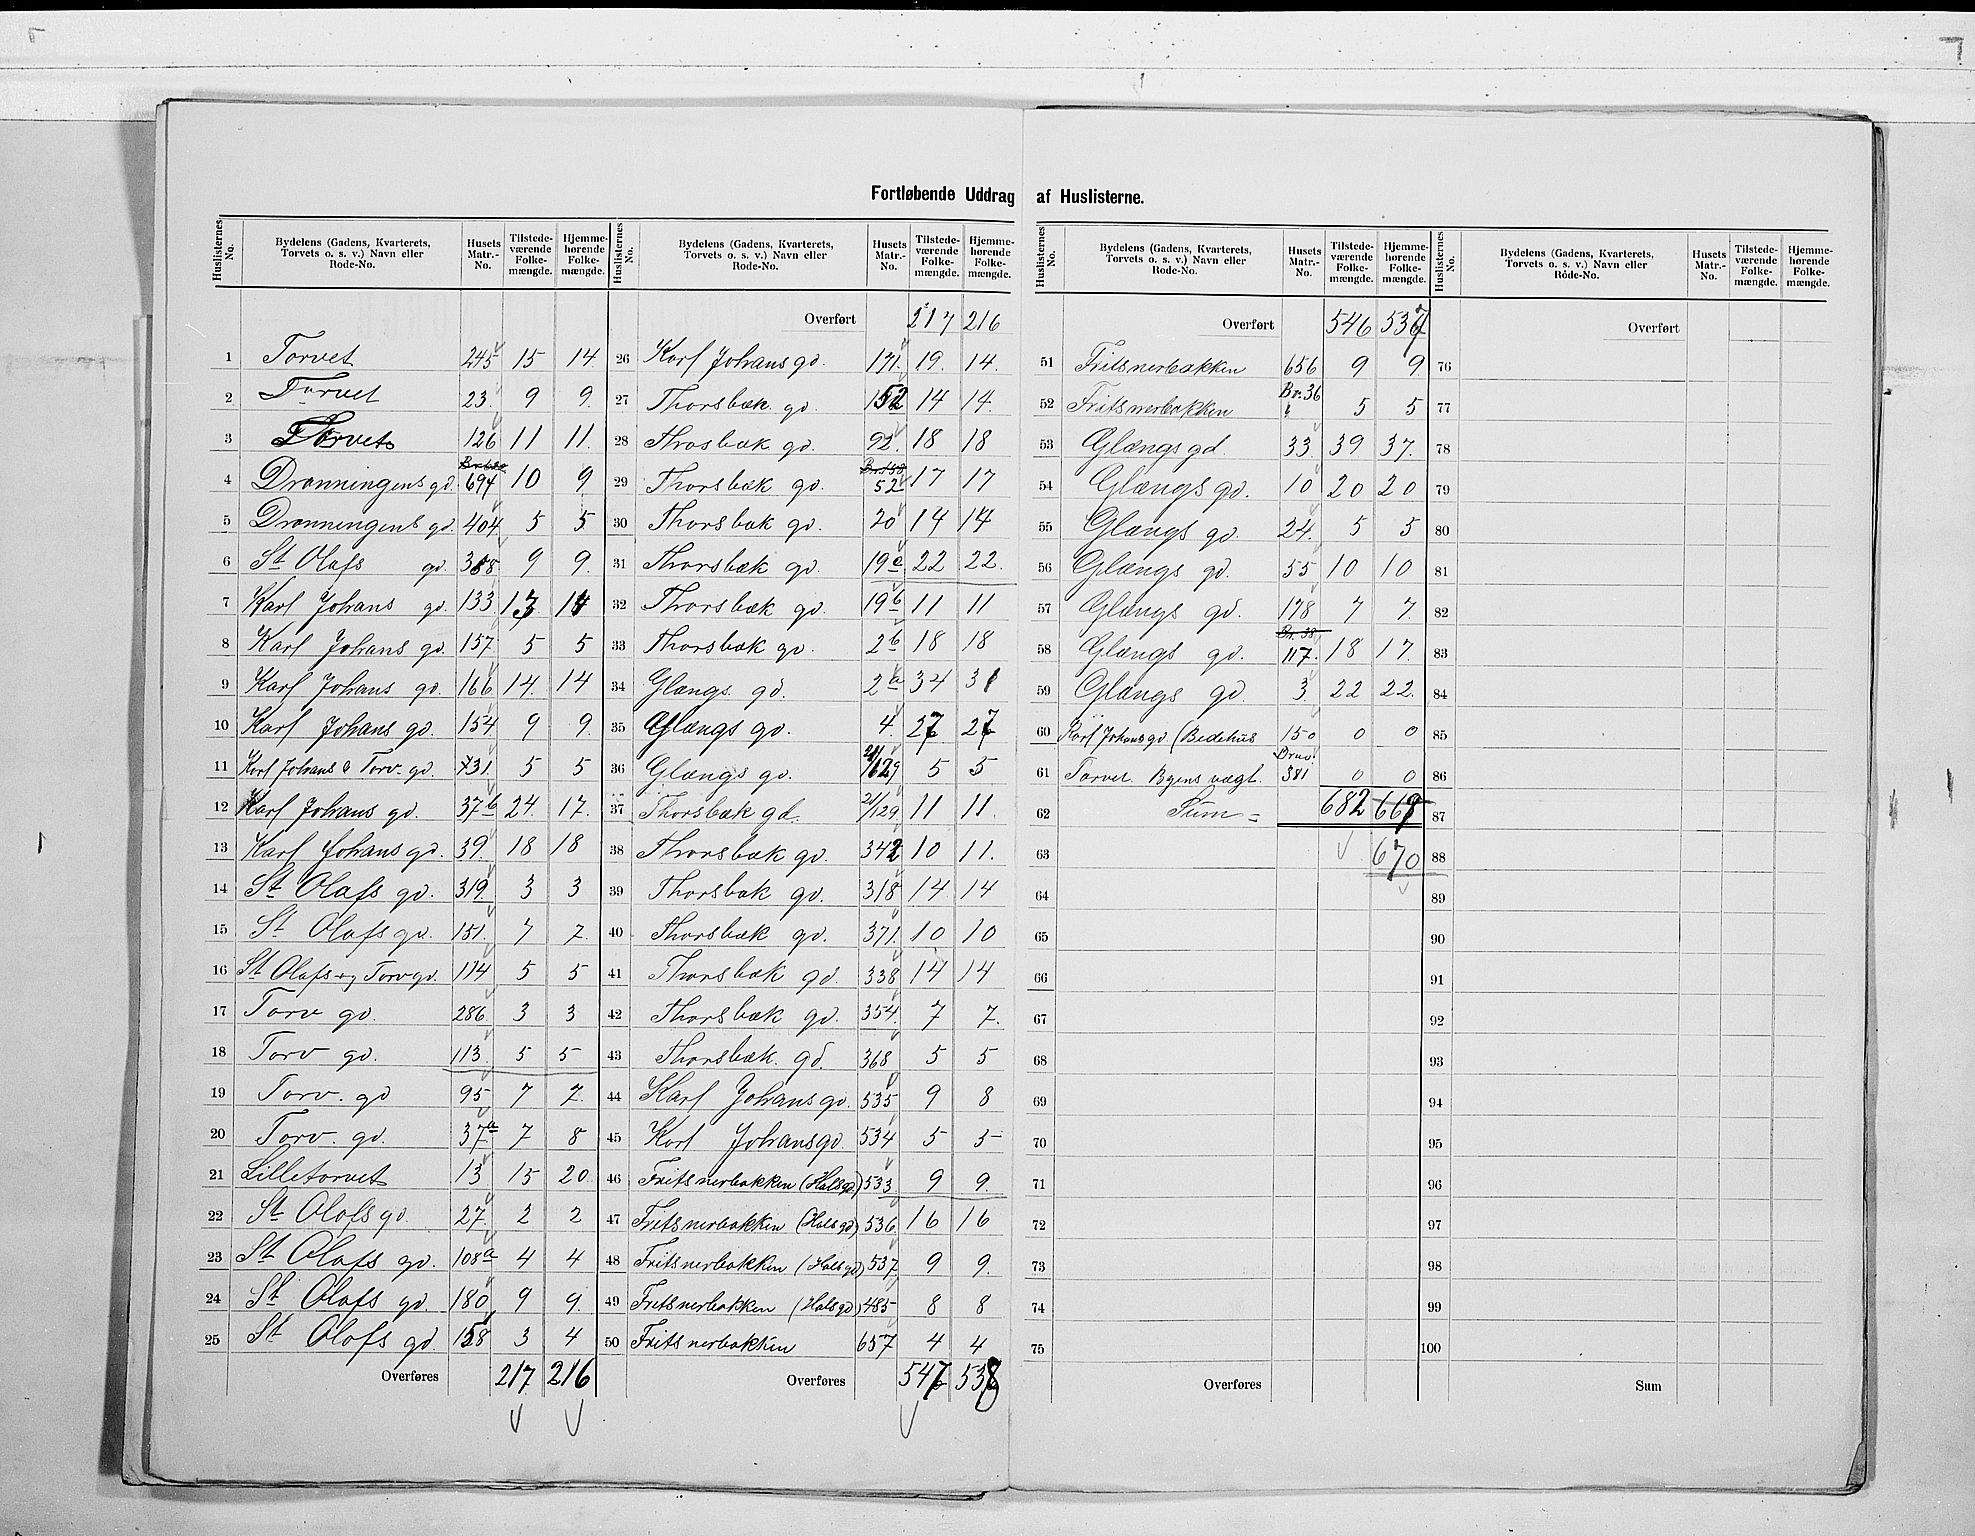 Fortløbende Uddrag af Huslisterne.
Huslisternes No. | Bydelens (Gadens, Kvarterets, Torvets o. s. v.) Navn eller Rode-No. | Husets Matr.-No. | Tilstedeværende Folkemængde. | Hjemmehørende Folkemængde.
1 Torvet 245 15 14
2 Torvet 23 9 9
3 Torvet 126 11 11.
4 Dronningens gd. 694 10 9
5 Dronningens gd. 404 5 5
6 St Olafs gd. 388 9 9.
7 Karl Johans gd. 133 13 14
8 Karl Johans gd. 157 5 5
9 Karl Johans gd. 166 14. 14
10 Karl Johans gd. 154 9 9.
11 Karl Johans & Torv. gd. 731. 5 5
12 Karl Johans gd. 37b 24. 17.
13 Karl Johans gd. 39. 18 18
14 St Olafs gd. 319. 3 3
15 St Olafs gd. 151. 7 7.
16 St Olafs og Torv gd. 114 5 5
17 Torv gd. 286. 3 3
18 Torv gd. 113. 5 5
19 Torv. gd 95 7 7.
20 Torv. gd. 37a 7 8
21 Lilletorvet 13 15 20
22 St Olafs gd. 27 2 2
23 St Olafs gd. 108a 4 4
24 St Olafs gd. 180 9 9.
25 St Olafs gd 158 3 4
Overføres 217 216
Huslisternes No. | Bydelens (Gadens, Kvarterets, Torvets o. s. v.) Navn eller Rode-No. | Husets Matr.-No. | Tilstedeværende Folkemængde. | Hjemmehørende Folkemængde.
Overført 217 216
26 Karl Johans gd. 171. 19. 14.
27 Thorsbæk gd. 152 14 14.
28 Throsbæk gd. 92. 18 18
29 Thorsbæk gd. 52 17 17
30 Thorsbæk gd. 20 14 14
31 Thorsbæk gd. 19a 22 22.
32 Thorsbæk gd. 19b 11 11
33 Thorsbæk gd. 2b 18 18
34 Glængs gd. 2a 34 31
35 Glængs gd. 4. 27 27
36 Glængs gd. 5 5
37 Thorsbæk gd. 21/129 11 11.
38 Thorsbæk gd. 342 10 11.
39 Thorsbæk gd. 318 14 14
40 Thorsbæk gd. 371. 10 10
41 Thorsbæk gd. 338 14 14
42 Thorsbæk gd. 354. 7 7.
43 Thorsbæk. gd. 368 5 5
44 Karl Johans gd. 535 9 8
45 Karl Johans gd. 534 5 5
46 Fritsnerbakken (Halsgd.) 533 9 9.
47 Fritsnerbakken (Halsgd) 536 16 16
48 Fritsnerbakken (Halsgd) 537 9 9.
49 Fritsnerbakken (Halsgd) 485 8 8
50 Fritsnerbakken 657 4 4
Overføres 546 538
Huslisternes No. | Bydelens (Gadens, Kvarterets, Torvets o. s. v.) Navn eller Rode-No. | Husets Matr.-No. | Tilstedeværende Folkemængde. | Hjemmehørende Folkemængde.
Overført 546 537
51 Fritsnerbakken 656 9 9
52 Fritsnerbakken Br. 36 5 5
53 Glængs gd. 33 39 37.
54 Glængs gd. 10 20 20
55 Glængs gd. 24. 5 5
56 Glængs gd. 55 10 10
57 Glængs gd. 178 7 7.
58 Glængs gd. 117. 18 17.
59 Glængs gd. 3. 22 22.
60 Karl Johans gd (Bedehus 150 0 0
61 Torvet Byens vægt. 381 0 0
62 Sum = 682 669
63 670
64
65
66
67
68
69
70
71
72
73
74
75
Overføres
Huslisternes No. | Bydelens (Gadens, Kvarterets, Torvets o. s. v.) Navn eller Rode-No. | Husets Matr.-No. | Tilstedeværende Folkemængde. | Hjemmehørende Folkemængde.
Overført
76
77
78
79
80
81
82
83
84
85
86
87
88
89
90
91
92
93
94
95
96
97
98
99
100
Sum